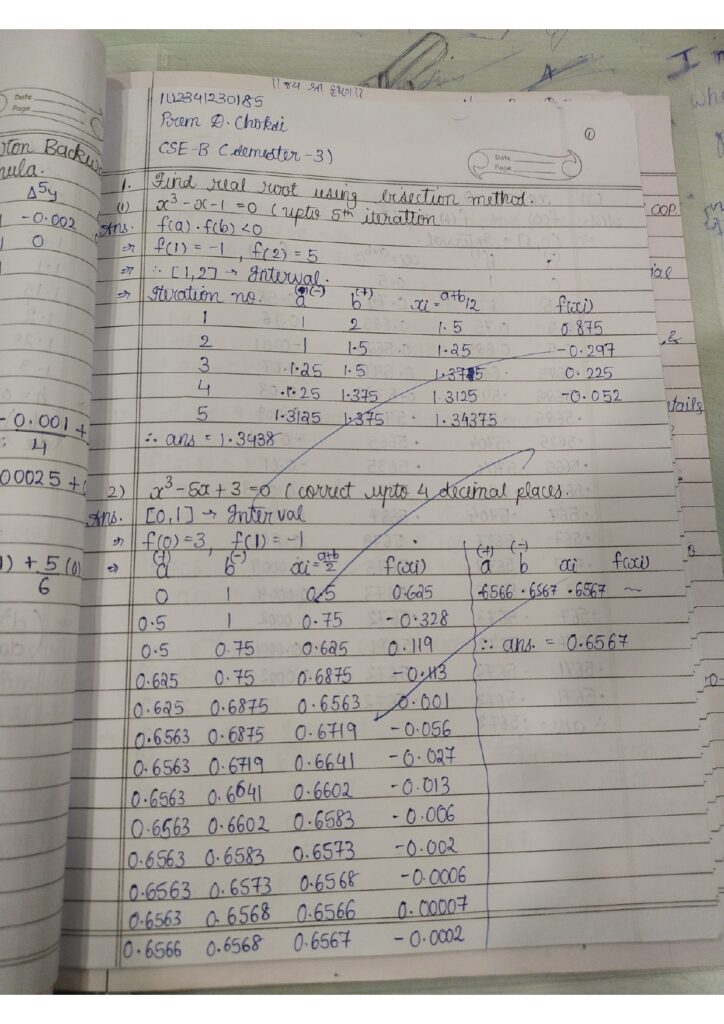 I m
who
॥ જય શ્રી કૃષ્ણ ॥
IU2341230185
Prem D. Choksi
CSE-B (semester-3)
①
Date
Page
Date
Page
1. Find real root using bisection method.
(1) x³-x-1=0 (upto 5th iteration
Ans. f(a).f(b)<0
⇒ f(1) = -1, f(2) = 5
⇒ ∴ [1,2] → Interval.
⇒ Itiration no. a (-) b (+) xi = a+b/2 f(xi)
1 1 2 1.5 0.875
2 1 1.5 1.25 -0.297
3 1.25 1.5 1.375 0.225
4 1.25 1.375 1.3125 -0.052
5 1.3125 1.375 1.34375
∴ ans = 1.3438
2) x³-5x+3=0 (correct upto 4 decimal places.
Ans. [0,1] → Interval
⇒ f(0)=3, f(1)=-1
⇒ (+) a (-) b xi = a+b/2 f(xi)
0 1 0.5 0.625
0.5 1 0.75 -0.328
0.5 0.75 0.625 0.119
0.625 0.75 0.6875 -0.113
0.625 0.6875 0.6563 0.001
0.6563 0.6875 0.6719 -0.056
0.6563 0.6719 0.6641 -0.027
0.6563 0.6641 0.6602 -0.013
0.6563 0.6602 0.6583 -0.006
0.6563 0.6583 0.6573 -0.002
0.6563 0.6573 0.6568 -0.0006
0.6563 0.6568 0.6566 0.00007
0.6566 0.6568 0.6567 -0.0002
(+) a (-) b xi f(xi)
.6566 .6567 .6567 ~
∴ ans. = 0.6567
ton Backw
mula.
Δ⁵y
-0.002
0
-0.001 +
4
00025 +
) + 5 (0)
6
OOP
ial
&
etails